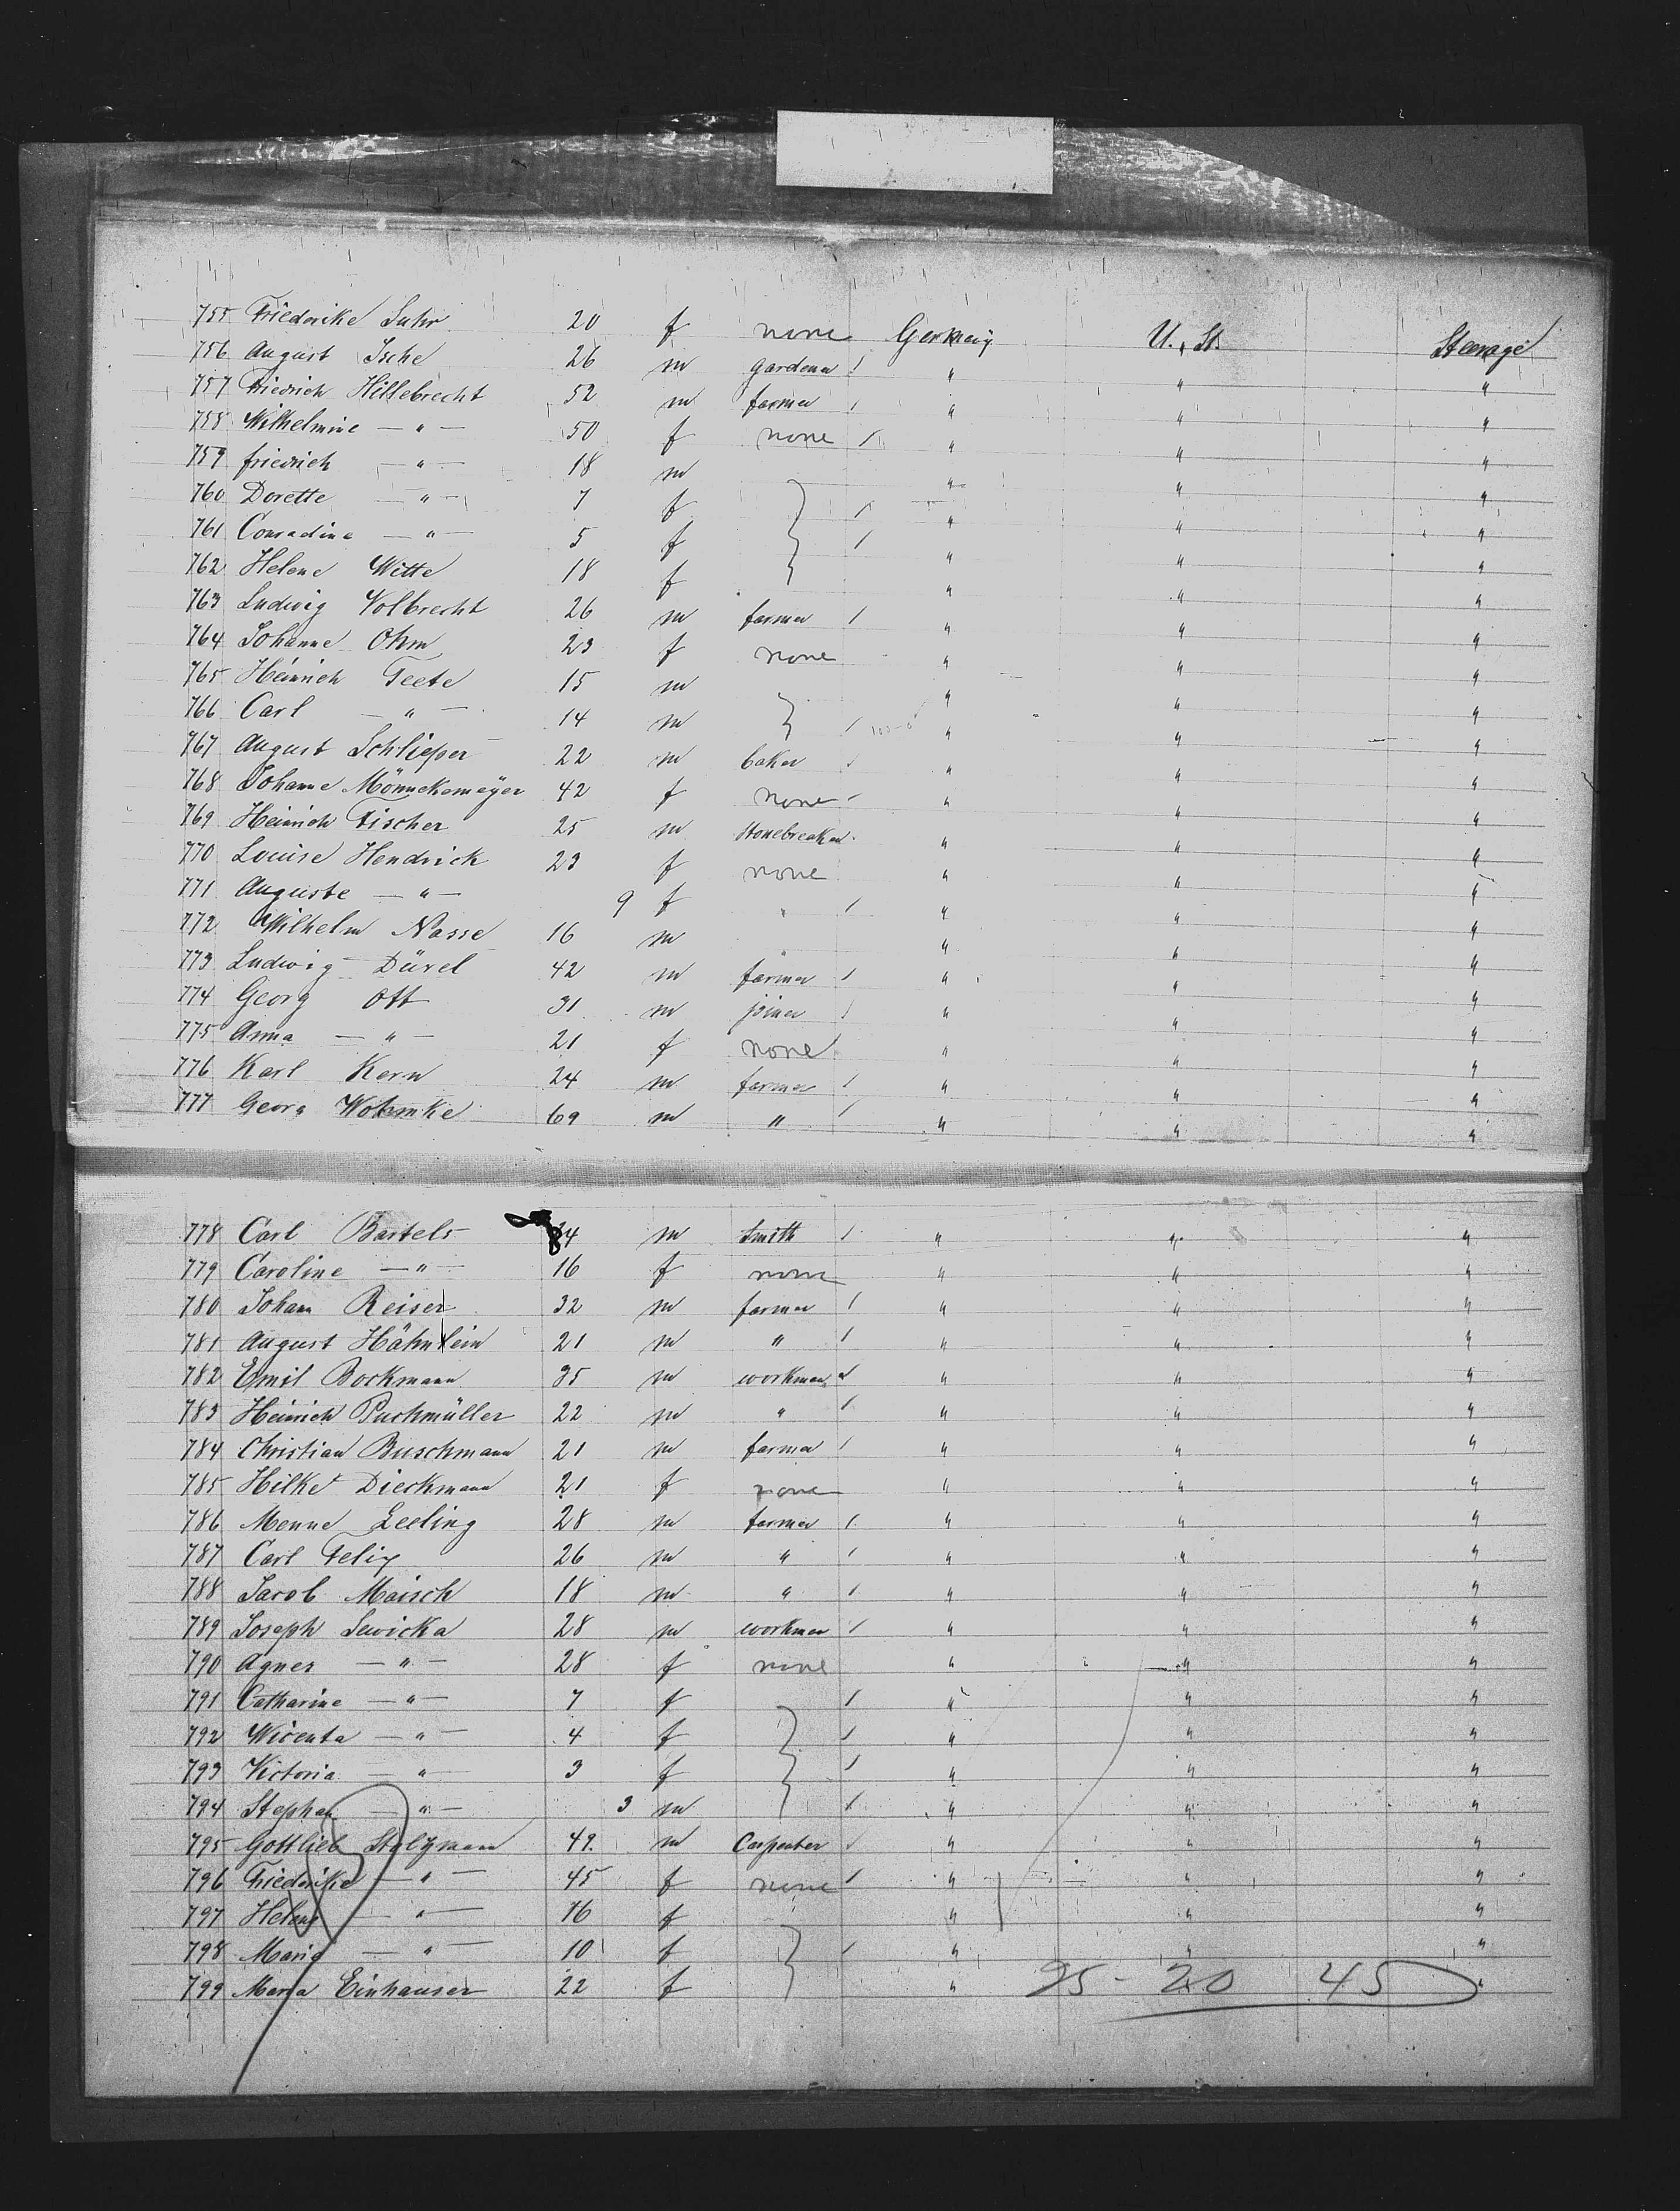 755 Friederike Suhr 20 f none Germany U. St. Steerage
756 August Ische 26 m gardener / " " "
757 Friedrich Hillebrecht 52 m farmer / " " "
758 Wilhelmine — " — 50 f none / " " "
759 friedrich — " — 18 m " " "
760 Dorette — " — 7 f } / " " "
761 Conradine — " — 5 f } / " " "
762 Helene Witte 18 f " " "
763 Ludwig Volbrecht 26 m farmer / " " "
764 Johanne Ohm 23 f none " " "
765 Heinrich Teete 15 m " " "
766 Carl — " — 14 m } / " " "
767 August Schlieper 22 m baker / " " "
768 Johanne Mönnekemeyer 42 f none / " " "
769 Heinrich Fischer 25 m Stonebreaker " " "
770 Louise Hendrick 23 f none " " "
771 Auguste — " — 9 f " / " " "
772 Wilhelm Nasse 16 m " " " "
773 Ludwig Dürel 42 m farmer / " " "
774 Georg Ott 31 m joiner / " " "
775 Anna — " — 21 f none " " "
776 Karl Kern 24 m farmer / " " "
777 Georg 69 m " / " " "
778 Carl Bartels 34 m Smith / " " "
779 Caroline — " — 16 f none " " "
780 Johann Reiser 32 m farmer / " " "
781 August Hähnlein 21 m " / " " "
782 Emil Bockmann 35 m workman / " " "
783 Heinrich Puckmüller 22 m " / " " "
784 Christian Buschmann 21 m farmer / " " "
785 Hilke Dieckmann 21 f none " " "
786 Menne Leeling 28 m farmer / " " "
787 Carl Felix 26 m " / " " "
788 Jacob Maisch 18 m " / " " "
789 Joseph Lewicka 28 m workman / " " "
790 Agnes — " — 28 f none " " "
791 Catharine — " — 7 f / " " "
792 Wicenta — " — 4 f } / " " "
793 Victoria — " — 3 f } / " " "
794 Stephan — " — 3 m / " " "
795 Gottlieb Stolzmann 49 m Carpenter / " " "
796 Friederike — " — 45 f none / " " "
797 Helene — " — 16 f " " "
798 Marie — " — 10 f } / " " "
799 Maria Einhauser 22 f " 25 - 20 45 "